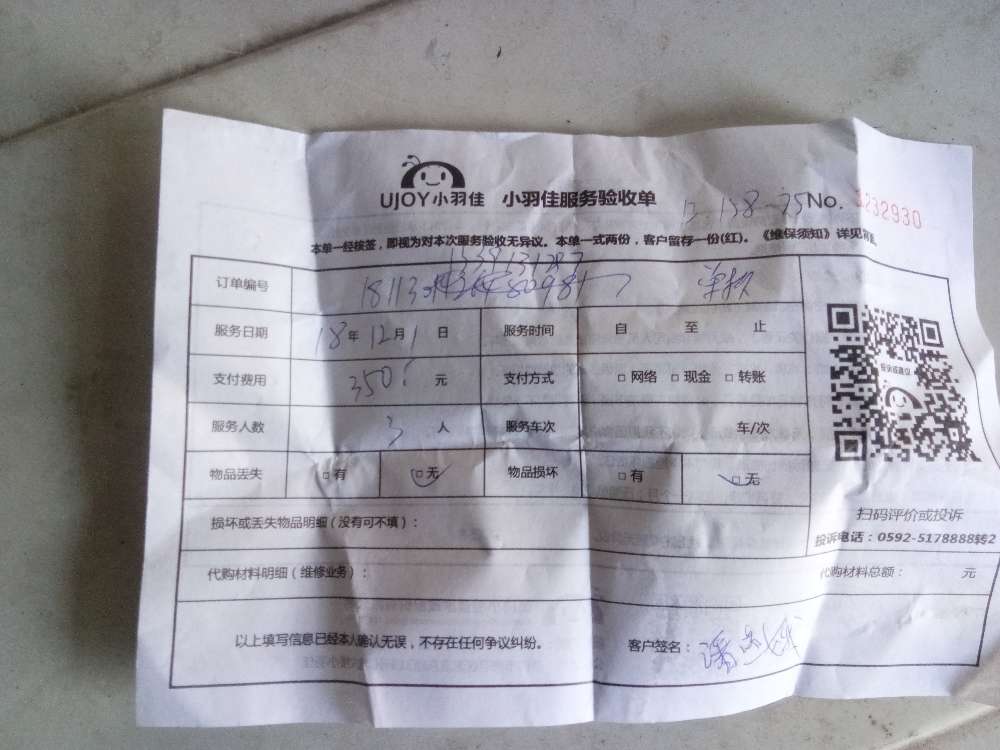 UJOY小羽佳 小羽佳服务验收单 No. 3232930
本单一经核签，即视为对本次服务验收无异议。本单一式两份，客户留存一份(红)。《维保须知》详见
订单编号
服务日期 18年12月1日 服务时间 自 至 止
支付费用 350 元 支付方式 □网络 □现金 □转账
服务人数 3 人 服务车次 车/次
物品丢失 □有 □无 物品损坏 □有 □无
投诉或建议
扫码评价或投诉
损坏或丢失物品明细（没有可不填）：
投诉电话：0592-5178888转2
代购材料明细（维修业务）： 代购材料总额： 元
以上填写信息已经本人确认无误，不存在任何争议纠纷。 客户签名：